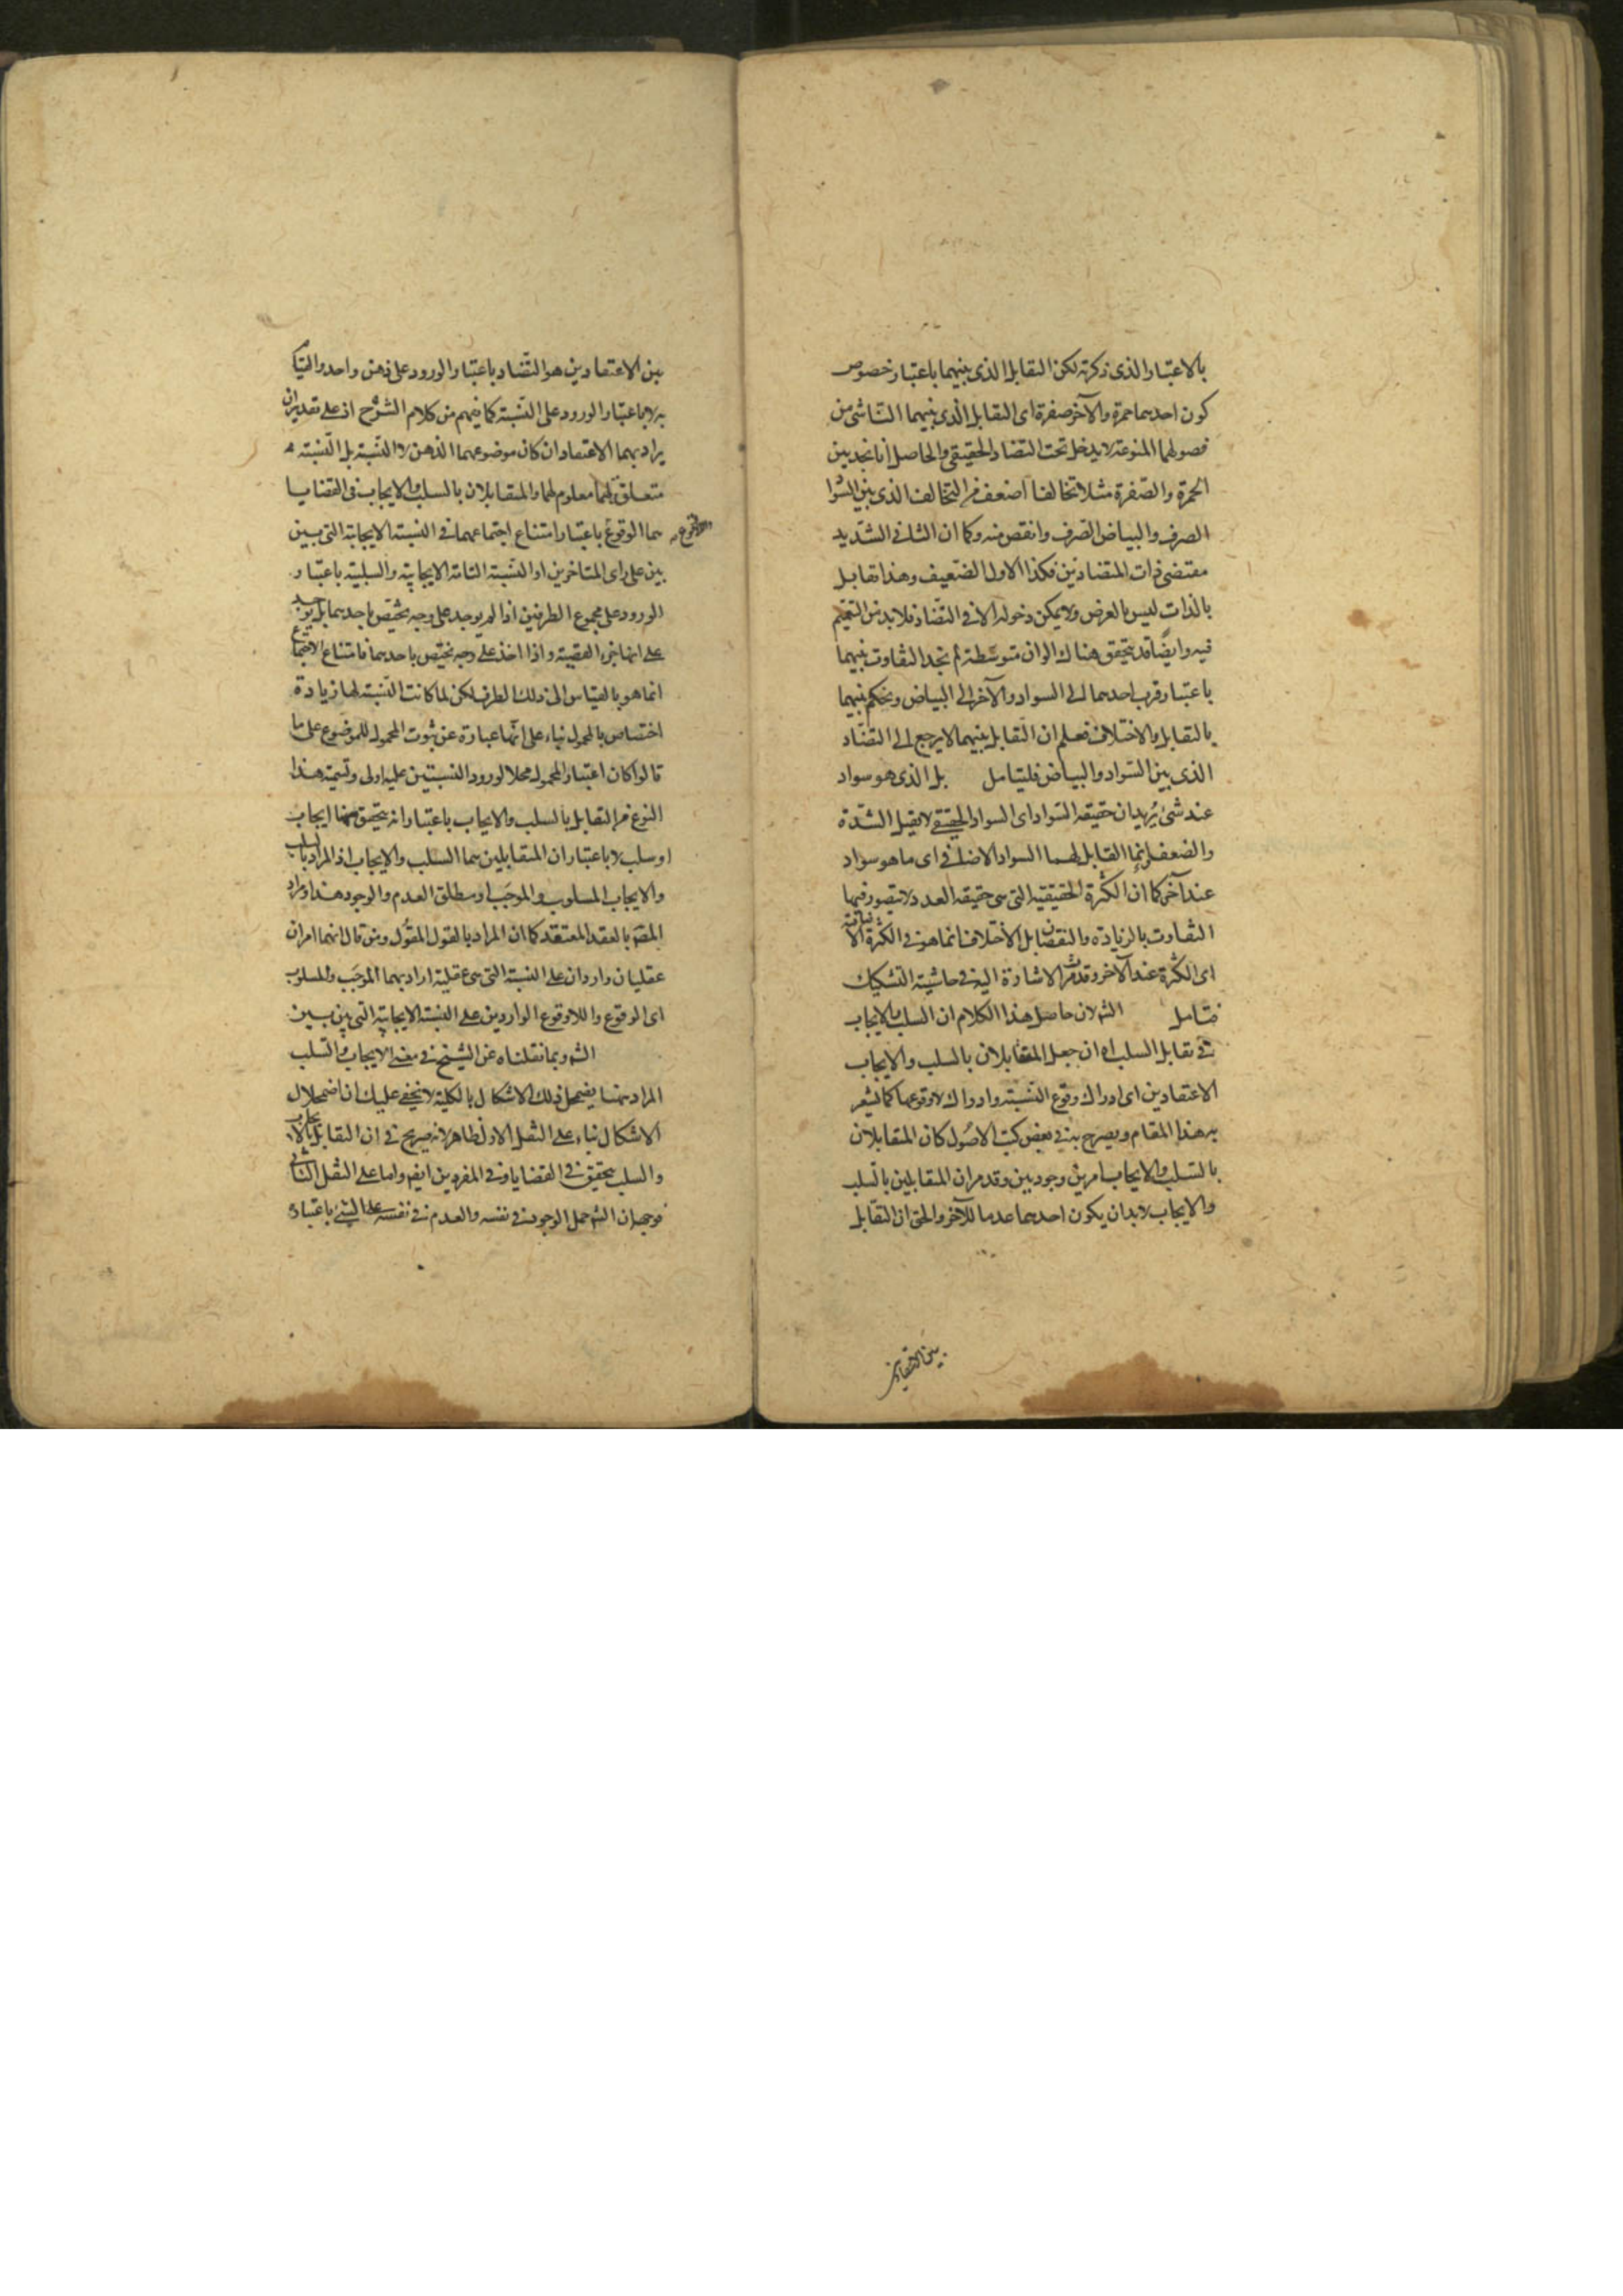 بالاعتبار الذى ذكرته لكن التقابل الذى بينهما باعتبار خصوص
كون احدهما حمرة والآخر صفرة اى التقابل الذى بينهما الناشى من
فصولهما المنوعة لا يدخل تحت التضاد الحقيقى والحاصل انا نجد بين
الحمرة والصفرة مثلا تخالفا اضعف من التخالف الذى بين السوا
الصرف والبياض الصرف وانقص منه وكما ان الثانى الشديد
مقتضى ذات المتضادين فكذا الاول الضعيف وهذا تقابل
بالذات ليس بالعرض ولا يمكن دخوله الا فى التضاد فلا بد من التعميم
فيه وايضا قد يتحقق هناك الوان متوسطة لم نجد التفاوت بينهما
باعتبار قرب احدهما الى السواد والآخر الى البياض ونحكم بينهما
بالتقابل والاختلاف فعلم ان التقابل بينهما لا يرجع الى التضاد
الذى بين السواد والبياض فليتامل بل الذى هو سواد
عند شئ يريد ان حقيقة السواد اى السواد الحقيقى لا تقبل الشدة
والضعف انما القابل لهما السواد الاضافى اى ما هو سواد
عند آخر كما ان الكثرة الحقيقية التى هى حقيقة العدد لا يتصور فيها
التفاوت بالزيادة والنقصان بل الاختلاف انما هو فى الكثرة الاضافية
اى الكثرة عند الآخر وقد مرت الاشارة اليه فى حاشية التشكيك
فتامل الشه لان حاصل هذا الكلام ان السلب والايجاب
فى تقابل السلب اه ان جعل المتقابلان بالسلب والايجاب
الاعتقادين اى ادراك وقوع النسبة وادراك لا وقوعها كما يشعر
به هذا المقام ويصرح به فى بعض كتب الاصول كان المتقابلان
بالسلب والايجاب امرين وجوديين وقد مر ان المتقابلين بالسلب
والايجاب لا بد ان يكون احدهما عدما للآخر والحق ان التقابل
بين الاعتقادين
بين الاعتقادين هو التضاد باعتبار الورود على ذهن واحد والتنا
به لا باعتبار الورود على النسبة كما يفهم من كلام الشرح اذ على تقدير ان
يراد بهما الاعتقاد ان كان موضوعهما الذهن لا النسبة بل النسبة
متعلق لهما معلوم لهما والمتقابلان بالسلب والايجاب فى القضايا
هما الوقوع واللاوقوع باعتبار امتناع اجتماعهما فى النسبة الايجابية التى بين
بين على راى المتاخرين او النسبة التامة الايجابية والسلبية باعتبار
الورود على مجموع الطرفين اذا لم يوجد على وجه يختص باحدهما بل يوجد
على انها جزء القضية واذا اخذ على وجه يختص باحدهما فامتناع الاجتماع
انما هو بالقياس الى ذلك الطرف لكن لما كانت النسبة لها زيادة
اختصاص بالمحمول بناء على انها عبارة عن ثبوت المحمول للموضوع على ما
قالوا كان اعتبار المحمول محلا لورود النسبتين عليه اولى وتسمية هذا
النوع من التقابل بالسلب والايجاب باعتبار انه يتحقق هنا ايجاب
او سلب لا باعتبار ان المتقابلين هما السلب والايجاب اذ المراد بالسلب
والايجاب المسلوب والموجب او مطلق العدم والوجود هذا ومراد
المصه بالعقد المعتقد كما ان المراد بالقول المقول ومن قال انهما امران
عقليان واردان على النسبة التى هى عقلية اراد بهما الموجب والمسلوب
اى الوقوع واللاوقوع الواردين على النسبة الايجابية التى بين بين
الشه وبما نقلناه عن الشيخ فى معنى الايجاب والسلب
المراد هنا يضمحل ذلك الاشكال بالكلية لا يخفى عليك ان اضمحلال
الاشكال بناء على النقل الاول ظاهر لانه صريح فى ان التقابل بالايجاب
والسلب يتحقق فى القضايا وفى المفردين ايضه واما على النقل الثانى
فوجهه ان الشه حمل الوجود فى نفسه والعدم فى نفسه على الشئ باعتبار